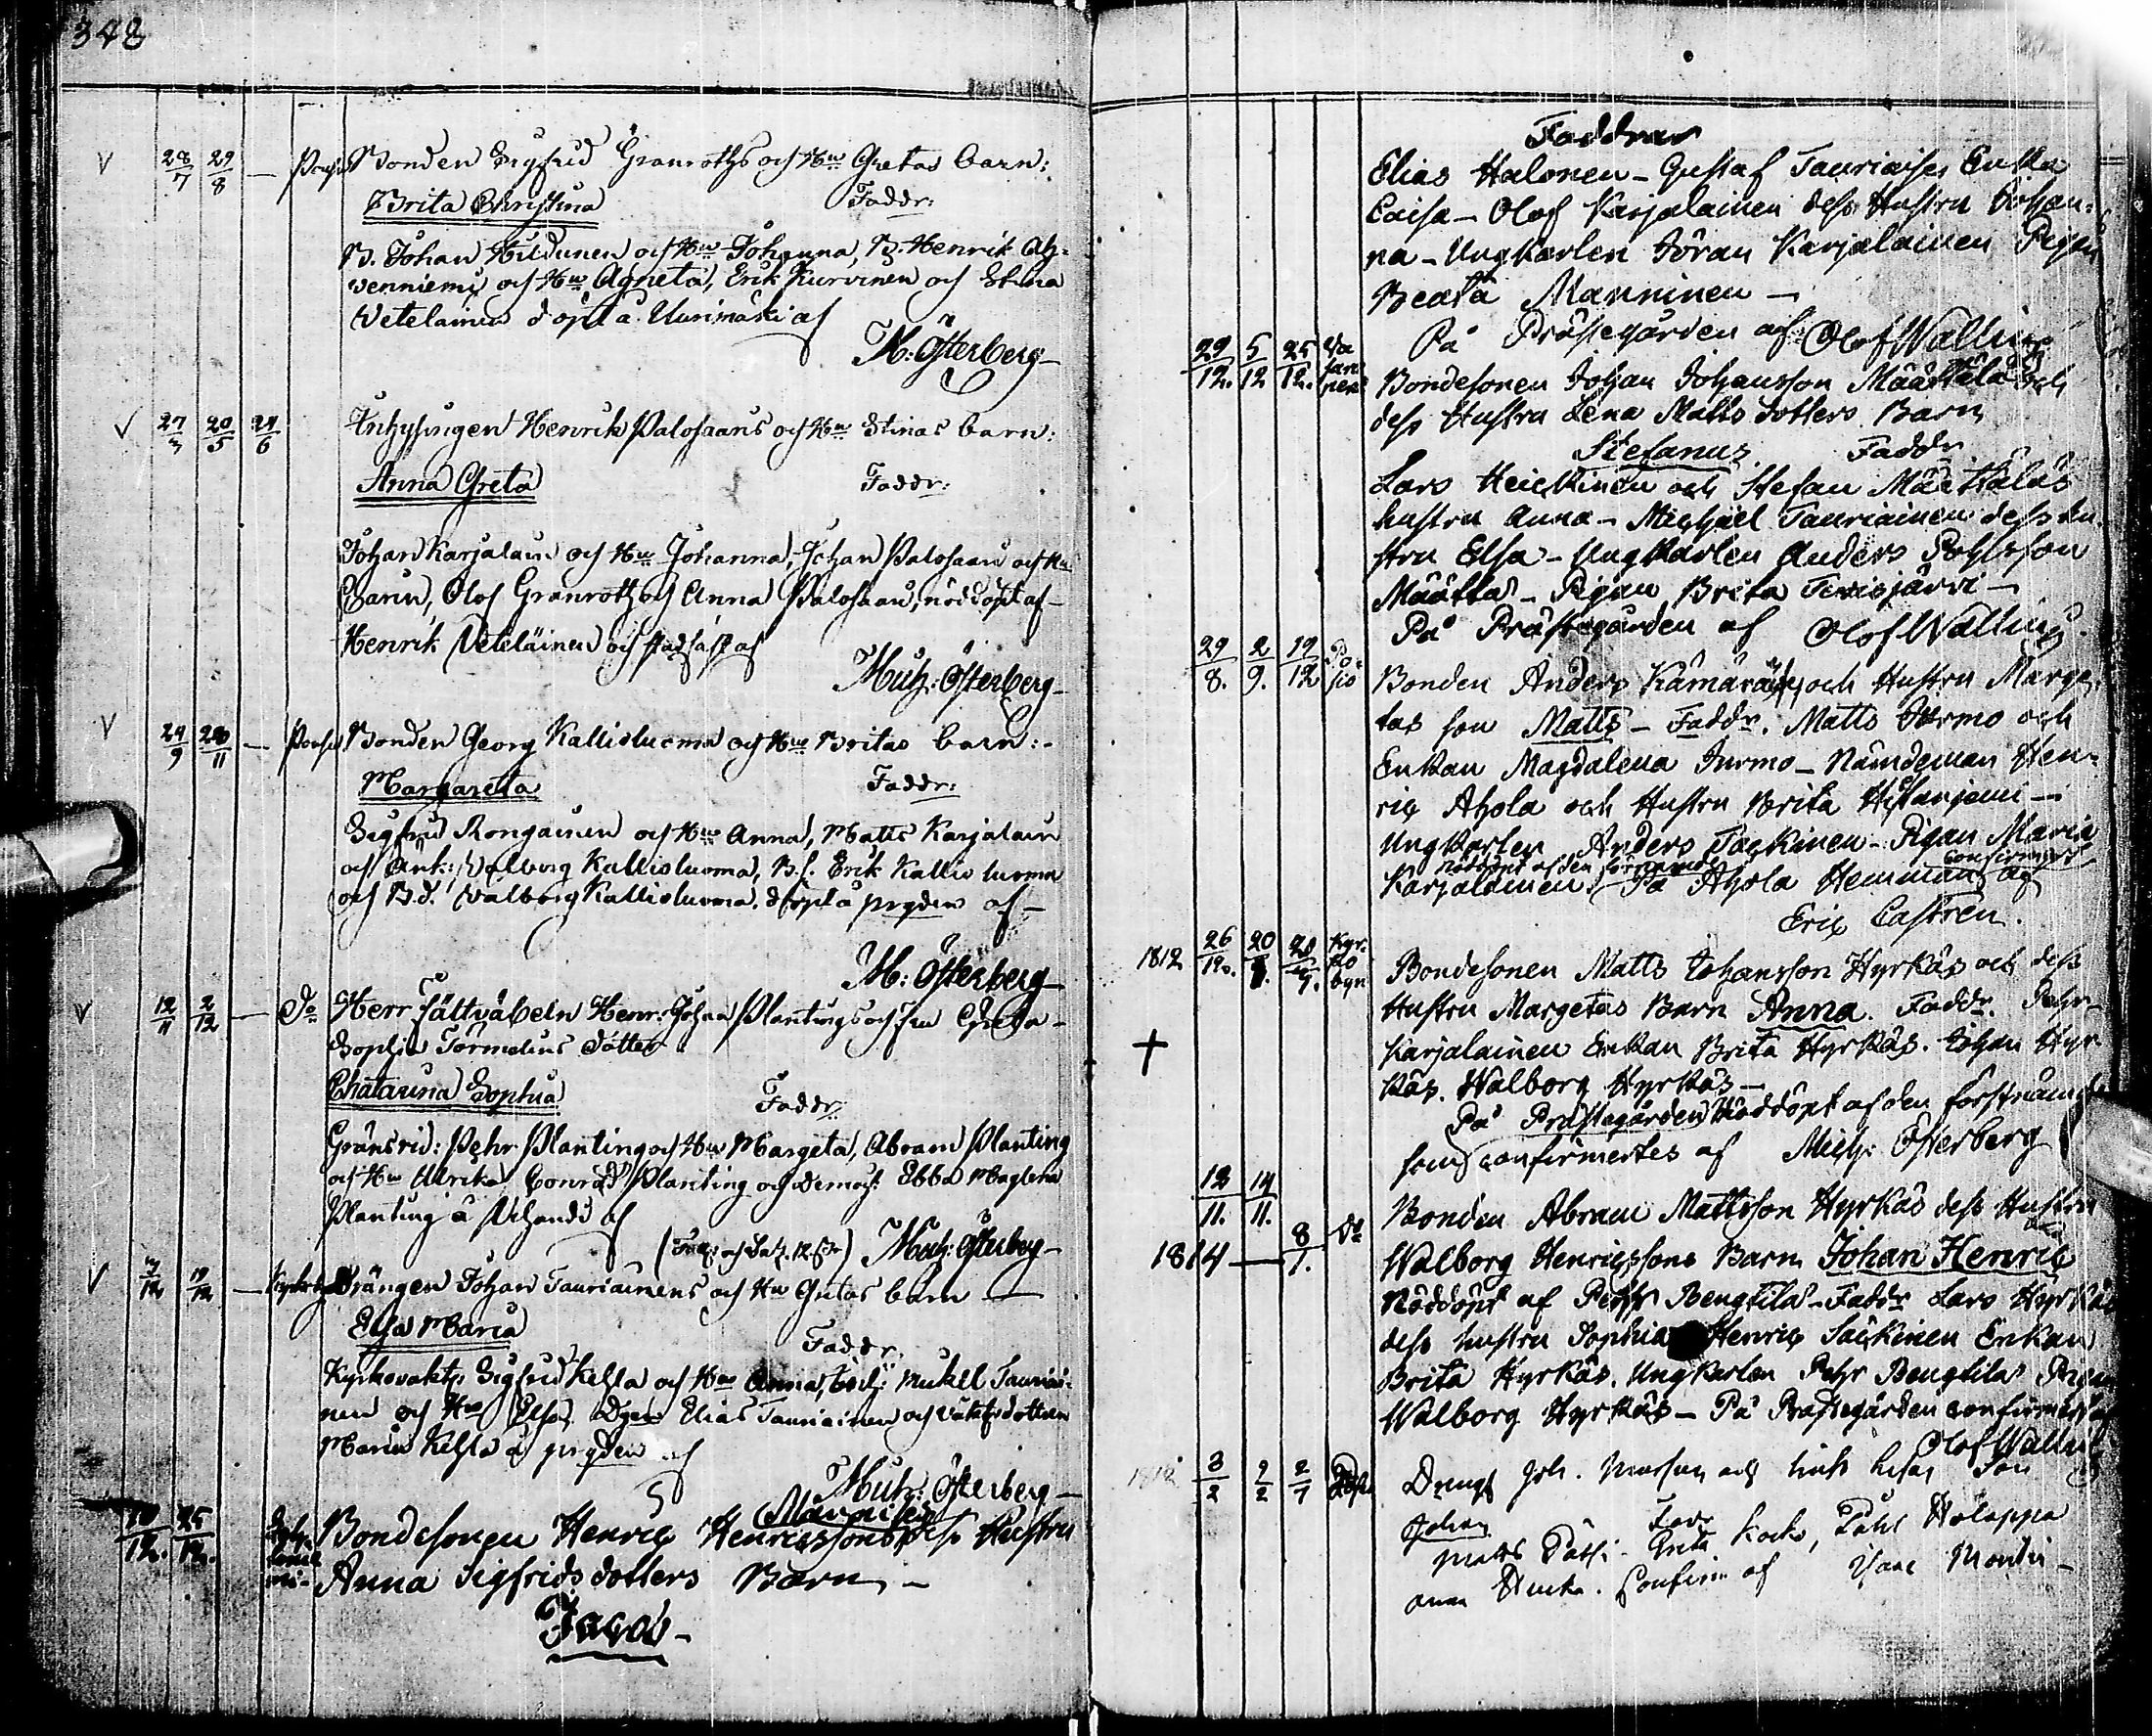 348
28/7 29/8 — Bonden Sigfrid Granroths och Hu Gretas barn:
Brita Christina Faddr:
B. Johan Hildunen och Hu Johanna, B. Henrik Ah=
venniemi och Hu Agneta, Erik Kurvinen och Stina
Vetelainen döpt a Uusimäki af
M: Österberg
27/3 20/5 24/6 Inhysingen Henrik Palosaaris och Hu Stinas barn:
Anna Greta Faddr:
Johan Karjalain och Hu Johanna, Johan Palosaari och Hu
Carin, Olof Granroth och Anna Palosaari, nöddöpt af
Henrik Veteläinen och stadfäst af
Mich: Österberg
24/9 28/11 — Bonden Georg Kallioluoma och Hu Britas barn:
Margareta Faddr:
Sigfrid Rongainen och Hu Anna, Matts Karjalain
och Änk: Valborg Kallioluoma, B.s. Erik Kallioluoma
och B.d. Valborg Kallioluoma. döpt a prgden af
M: Österberg
12/11 2/12 — Do Herr Fältväbeln Henr: Johan Plantings och Fru Greta
Sophia Törmelins dotter
Chatarina Sophia Faddr:
Gränsrid: Pehr Planting och Hu Margeta, Abram Planting
och Hu Ulrika, Conrad Planting och demois: Ebba Maglena
Planting a af
Mich: Österberg
7/12 19/12 — Drängen Johan Tauriainens och Hu Gretas barn
Elsa Maria Faddr.
Kyrkovakt: Sigfrid Kehla och Hu Anna, Mikell Tauriai=
nen och Hu Elsa, Elias Tauriainen och vaktsdottren
Maria Kehla a prgden af
Mich: Österberg
12. 25/12. Bondesonen Henric Henricssons dess Hustru
Anna Sigfridsdotters Barn
Jacob
Faddrar
Elias Halonen - Gustaf Tauriaises Enka
Caisa - Olof Karjalainen dess Hustru Johan=
na - Ungkarlen Jöran Karjalainen Pigan
Beata Manninen
På Prästegården af Olof Walling
29/12. 5/12 25/12. Bondesonen Johan Johansson Määttälä och
dess Hustru Lena Matts dotters Barn
Stefanus Faddr
Lars Heickinen och Stefan Määttäläs
hustru Anna - Michael Tauriainen dess hu
stru Elsa - Ungkarlen Anders Pehrsson
Määttä - Pigan Brita
På Prästegården af Olof Walling
29/8. 2/9. 19/12 Posio Bonden Anders Kämäräin och Hustru Marge
tas son Matts - Faddr. Matts Jurmo och
Enkan Magdalena Jurmo - Nämdeman Hen=
ric Ahola och Hustru Brita
Ungkarlen Anders Säckinen - Pigan Maria
Nöddöpt af den förstnämde confirmert
Karjalainen På Ahola Hemman af
Eric Castrén.
1812 26/12. 20/ 20/ Kyrkobyn Bondesonen Matts Johansson Hyrkäs och dess
Hustru Margetas Barn Anna. Faddr. Pehr
Karjalainen Enkan Brita Hyrkäs. Johan Hyr
käs. Walborg Hyrkäs
På Prästegården Nöddöpt af den förstnämde
som confirmertes af Mich: Österberg
12/11. 14/11. Bonden Abram Mattsson Hyrkäs dess Hustru
1814 — 8/1. Do Walborg Henricssons Barn Johan Henric
Nöddöpt af Pehr Bengtila - Faddr Lars Hyrkäs
dess hustru Sophia Henric Säckinen Enkan
Brita Hyrkäs. Ungkarlen Pehr Bengtila Pigan
Walborg Hyrkäs - På Prästegården confirmert af
Olof Walling
3/2 2/2 Joh. och Son
Johan Fadr
Matts Greta Påhl Holappa
Confirm af